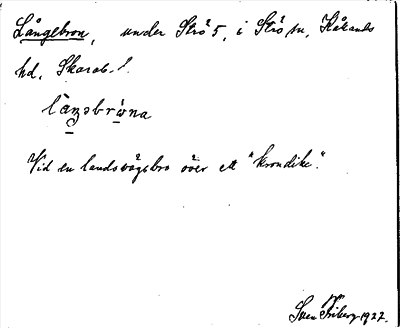 Långebron, under Strö 5, i Strö sn, Kåkands
hd, Skarab. l.
Vid en landsvägsbro över ett "krondike".
Sven Friberg 1927.